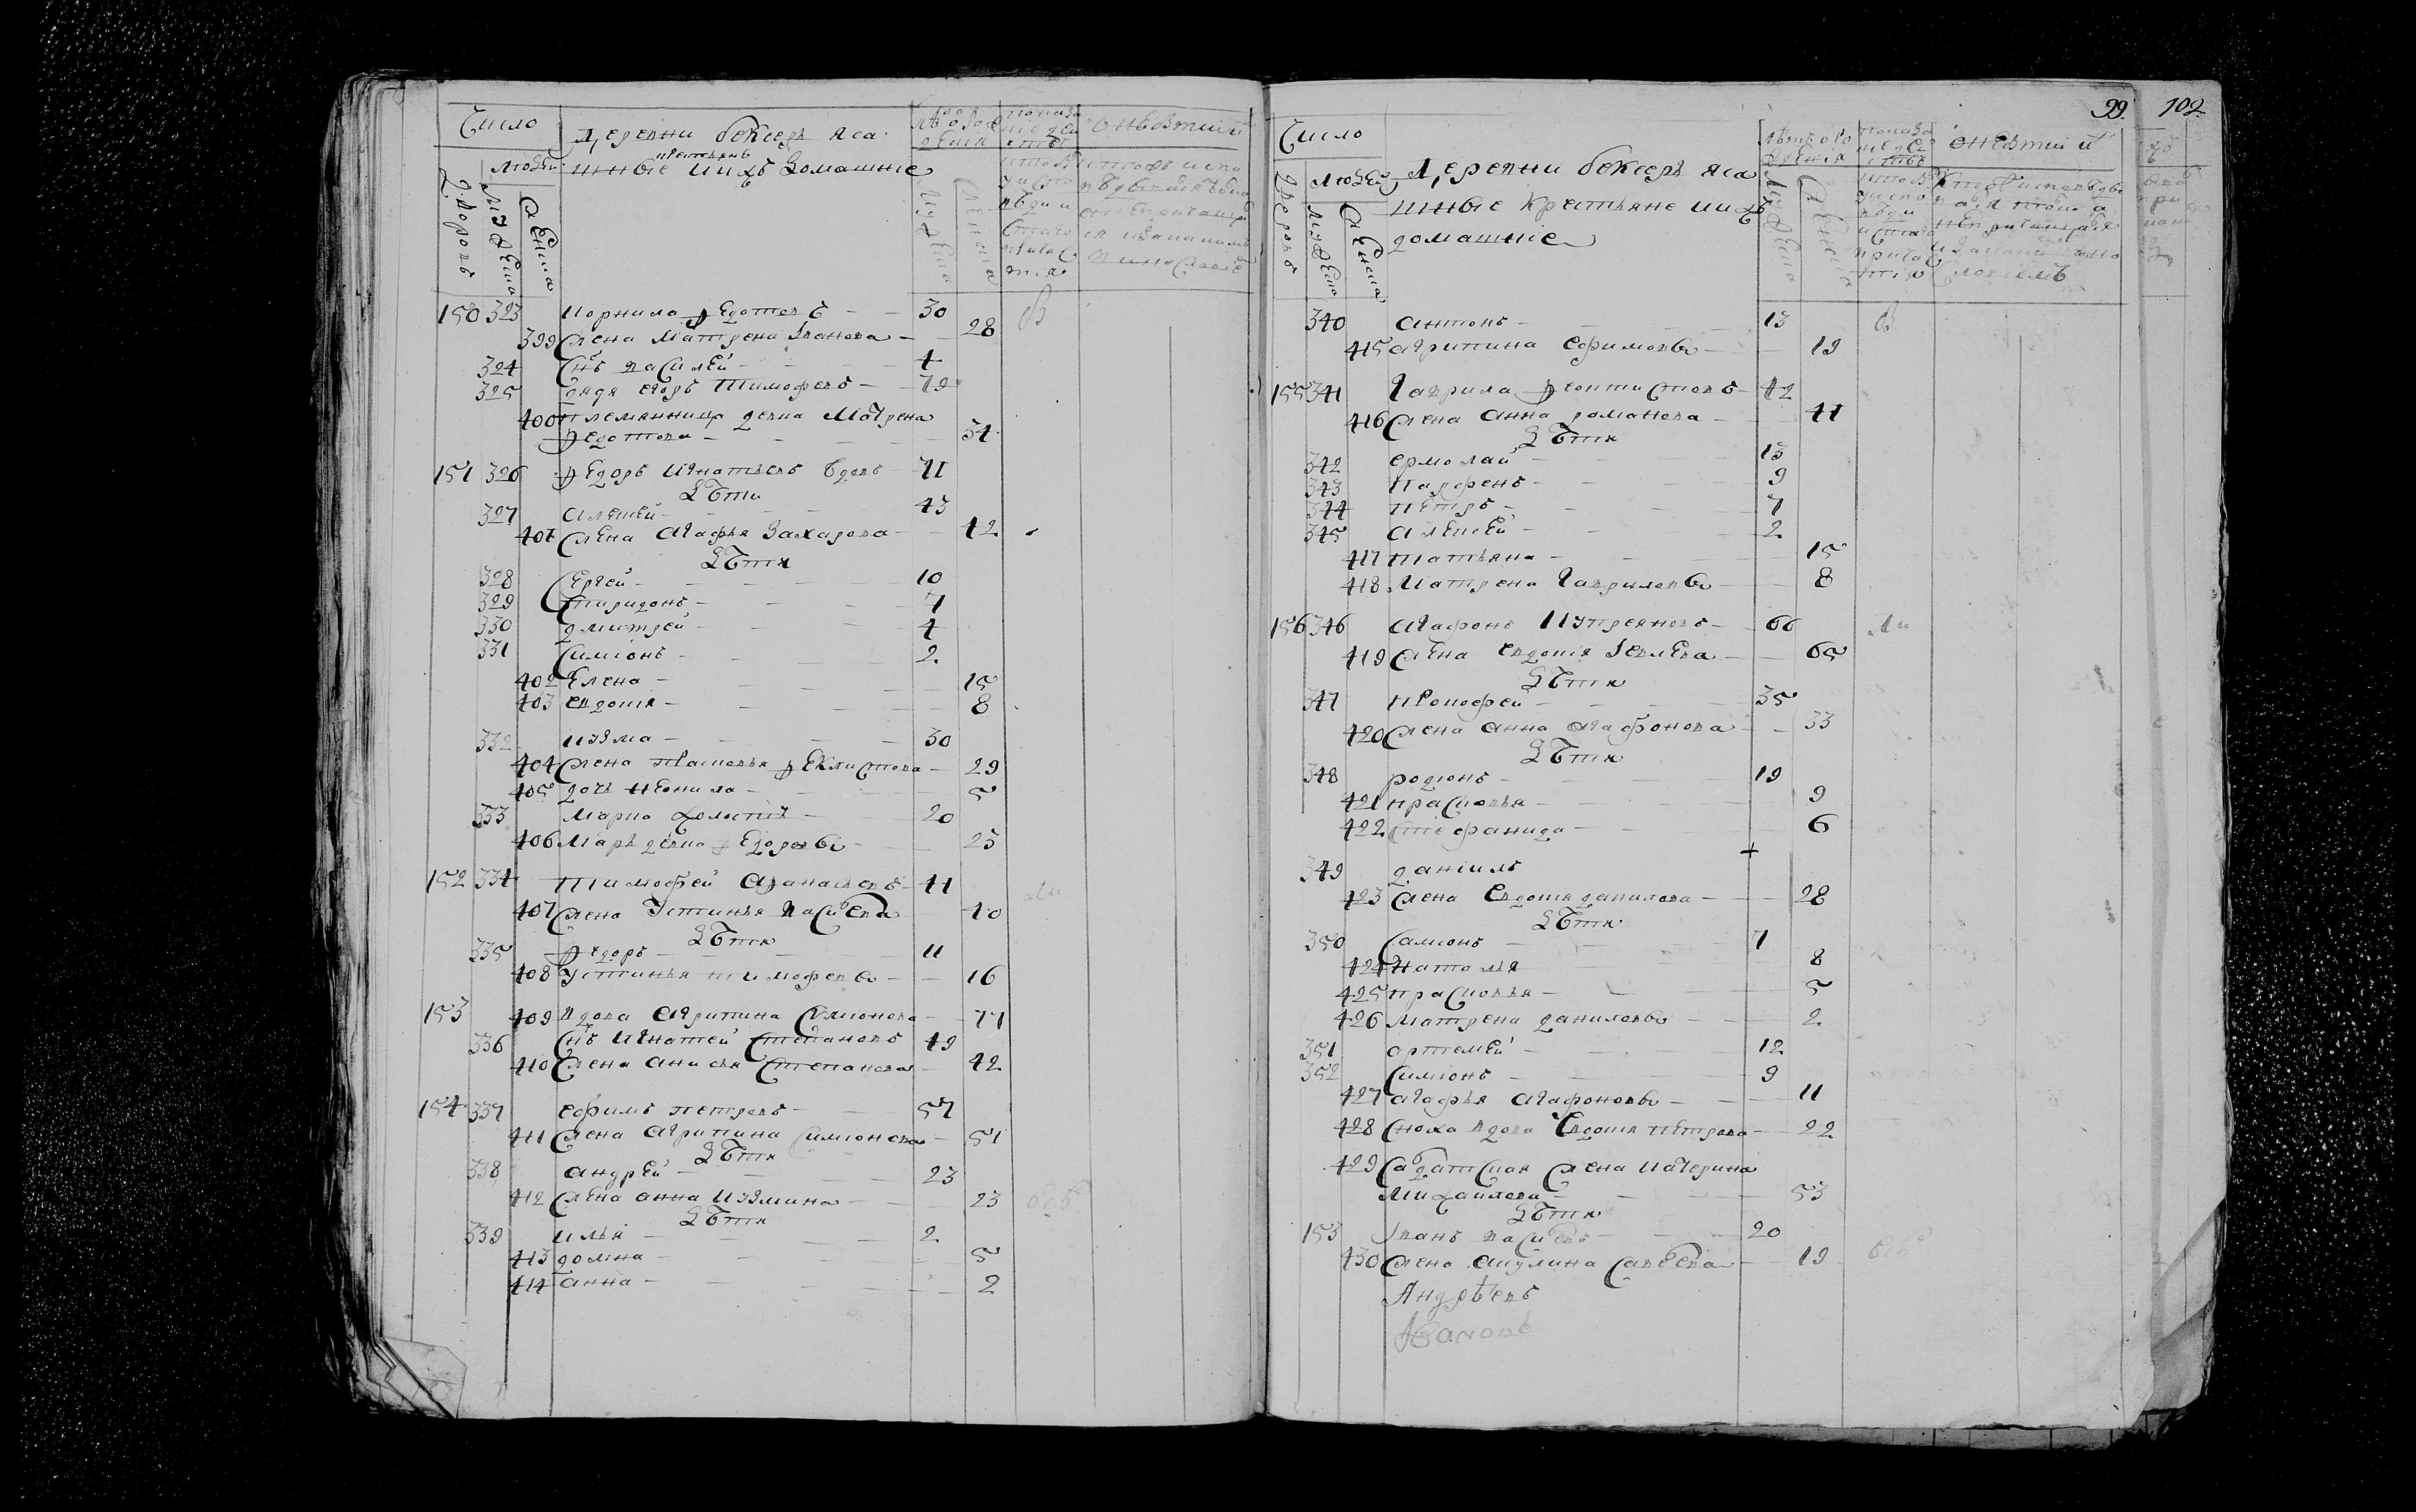 Число
Деревни бексеръ яса
крестьянъ
шныє ихъ домашніе
Людей
Дворовъ
Муж Ена
Женска
150 323 Корнила Ѳедотовъ 30
399 Жена Матрена Іванова 28
324 Снъ василей 4
325 дядя егоръ Тимофеевъ 72
400 племянница девка Матрена
Ѳедотова 34
151 326 Ѳедоръ Игнатьевъ вдовъ 71
Дѣти
327 алексей 43
401 Жена агафья Захарова 42
Дѣти
328 Сергей 10
329 Спиридонъ 7
330 дмитрей 4
331 Симіонъ 2
402 Елена 15
403 евдокія 8
332 кузма 30
404 Жена прасковья Ѳеклистова 29
405 дочь неонила 5
333 Марко холостъ 20
406 Марья девка Ѳедорова 25
152 334 Тимофей Афанасьевъ 41
407 Жена Устинья васильева 40
Дѣти
335 Ѳедоръ 11
408 Устинья тимофеева 16
153 409 вдова агрипина Симіонова 77
336 Снъ Игнатей Степановъ 49
410 Жена анисья Степанова 42
154 337 ефимъ петровъ 57
411 Жена агрипина Симіонова 51
Дѣти
338 андрей 23
412 Жена анна кузмина 23
Дѣти
339 илья 2
413 домна 5
414 анна 2
99 102
Число
Деревни бексеръ яса
шные крестьяне ихъ
домашніе
Людей
Дворовъ
340 антонъ 13
415 агрипина ефимовы 19
155 341 Гаврила Ѳеоктистовъ 42
416 Жена анна романова 41
Дѣти
342 ермолай 13
343 Парфенъ 9
344 петръ 7
345 алексей 2
417 татьяна 15
418 Матрена Гавриловы 8
156 346 агафонъ Купреяновъ 66
419 Жена евдокія Іевлева 65
Дѣти
347 прокофей 35
420 Жена анна агафонова 33
Дѣти
348 родіонъ 19
421 прасковья 9
422 стефанида 6
349 даніилъ +
423 Жена евдокія данилова 28
Дѣти
350 Самсонъ 7
424 наталья 8
425 прасковья 5
426 матрена даниловы 2
351 артемей 12
352 Симіонъ 9
427 агафья агафоновы 11
428 Сноха вдова Евдокія петрова 22
429 Салдатская Жена катерина
Михайлова 53
Дѣти
153 Іванъ васильевъ 20
430 Жена акулина Савельева 19
Андрѣевъ